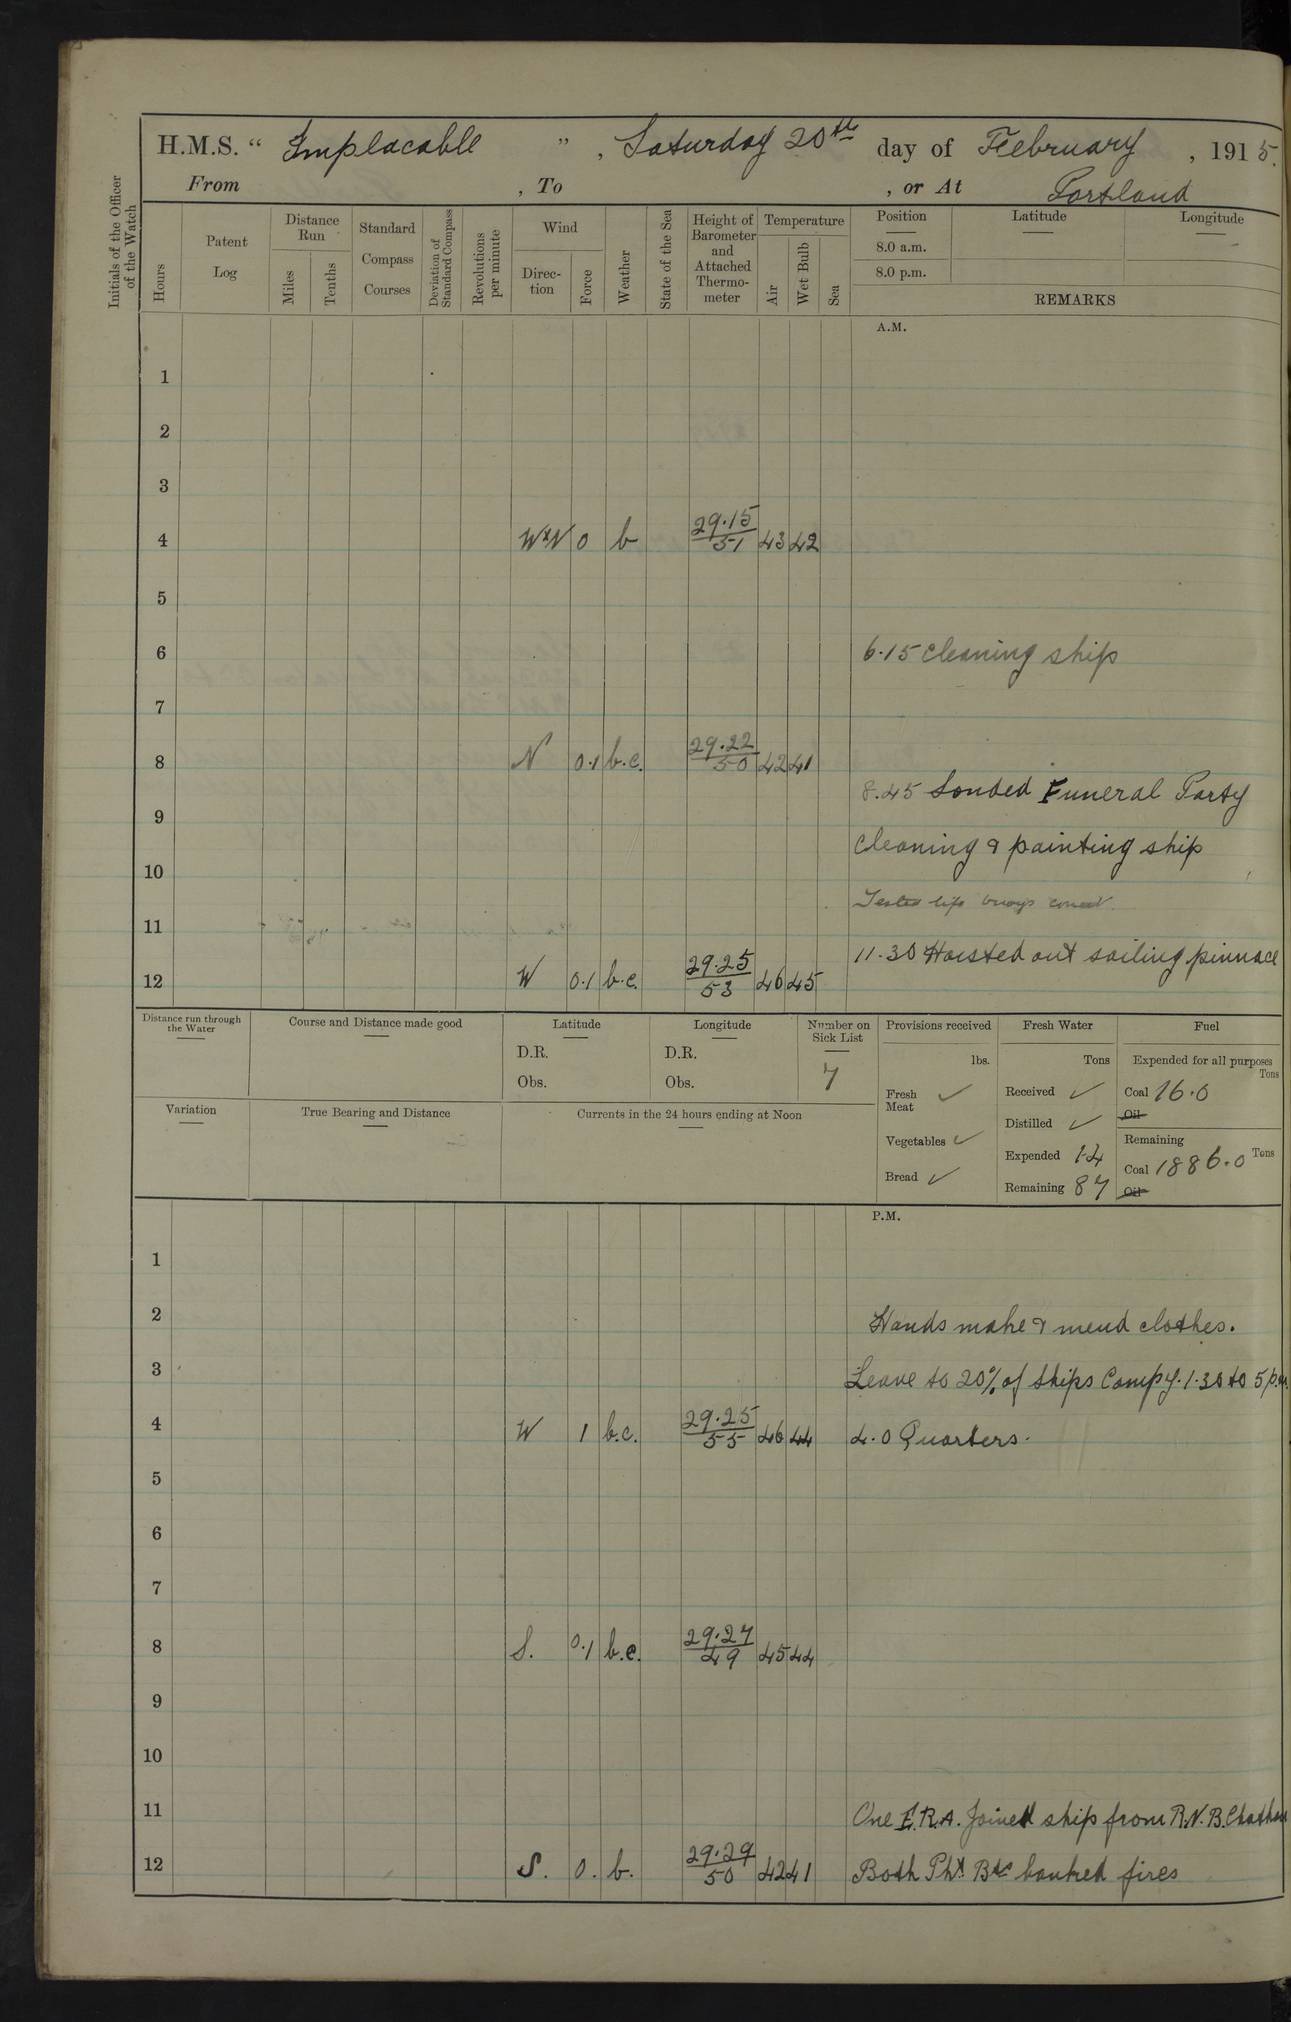 H.M.S. “ Implacable ” , Saturday 20th day of February , 1915.
From , To , or At Portland
Initials of the Officer of the Watch
Hours
Patent Log
Distance Run
Miles
Tenths
Standard Compass Courses
Deviation of Standard Compass
Revolutions per minute
Wind
Direc-tion
Force
Weather
State of the Sea
Height of Barometer and Attached Thermo-meter
Temperature
Air
Wet Bulb
Sea
Position Latitude Longitude
8.0 a.m.
8.0 p.m.
REMARKS
A.M.
1
2
3
4 WxN 0 b 29.15/51 43 42
5
6 6.15 Cleaning ship
7
8 N 0.1 b.c. 29.22/50 42 41
8.45 Landed Funeral Party
9
Cleaning & painting ship
10
Tested life buoys correct.
11
11.30 Hoisted out sailing pinnace
12 W 0.1 b.c. 29.25/53 46 45
Distance run through the Water
Course and Distance made good
Latitude
D.R.
Obs.
Longitude
D.R.
Obs.
Number on Sick List
7
Provisions received
lbs.
Fresh Meat ✓
Vegetables ✓
Bread ✓
Fresh Water
Tons
Received ✓
Distilled ✓
Expended 14
Remaining 87
Fuel
Expended for all purposes
Tons
Coal 16.0
Oil
Remaining
Coal 1886.0 Tons
Oil
Variation
True Bearing and Distance
Currents in the 24 hours ending at Noon
P.M.
1
2 Hands make & mend clothes.
3 Leave to 20% of Ships Compy. 1.30 to 5 p.m.
4 W 1 b.c. 29.25/55 46 44 4.0 Quarters.
5
6
7
8 S. 0.1 b.c. 29.27/49 45 44
9
10
11 One E.R.A. Joined ship from R.N.B. Chatham
12 S. 0. b. 29.29/50 42 41 Both Pkt Bts banked fires